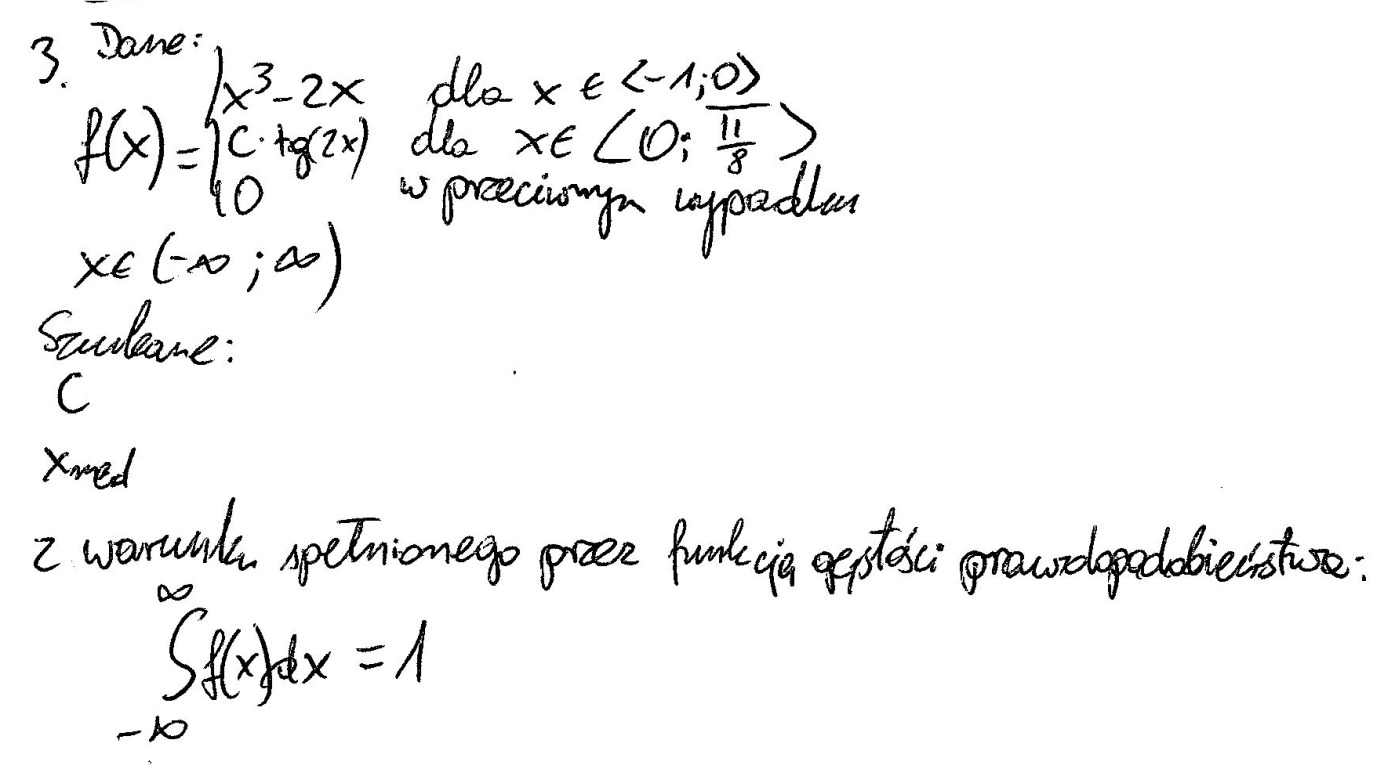 3. Dane:
f(x) = { x³-2x dla x ∈ <-1;0>
C·tg(2x) dla x∈ <0; π/8>
0 w przeciwnym wypadku
x∈ (-∞ ; ∞)
Szukane:
C
xmed
z warunku spełnionego przez funkcją gęstości prawdopodobieństwa:
∞
∫f(x)dx = 1
-∞